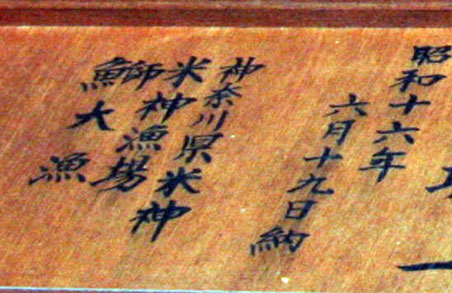 昭和十六年
六月十九日納
神奈川県米神
米神漁場
鰤大漁